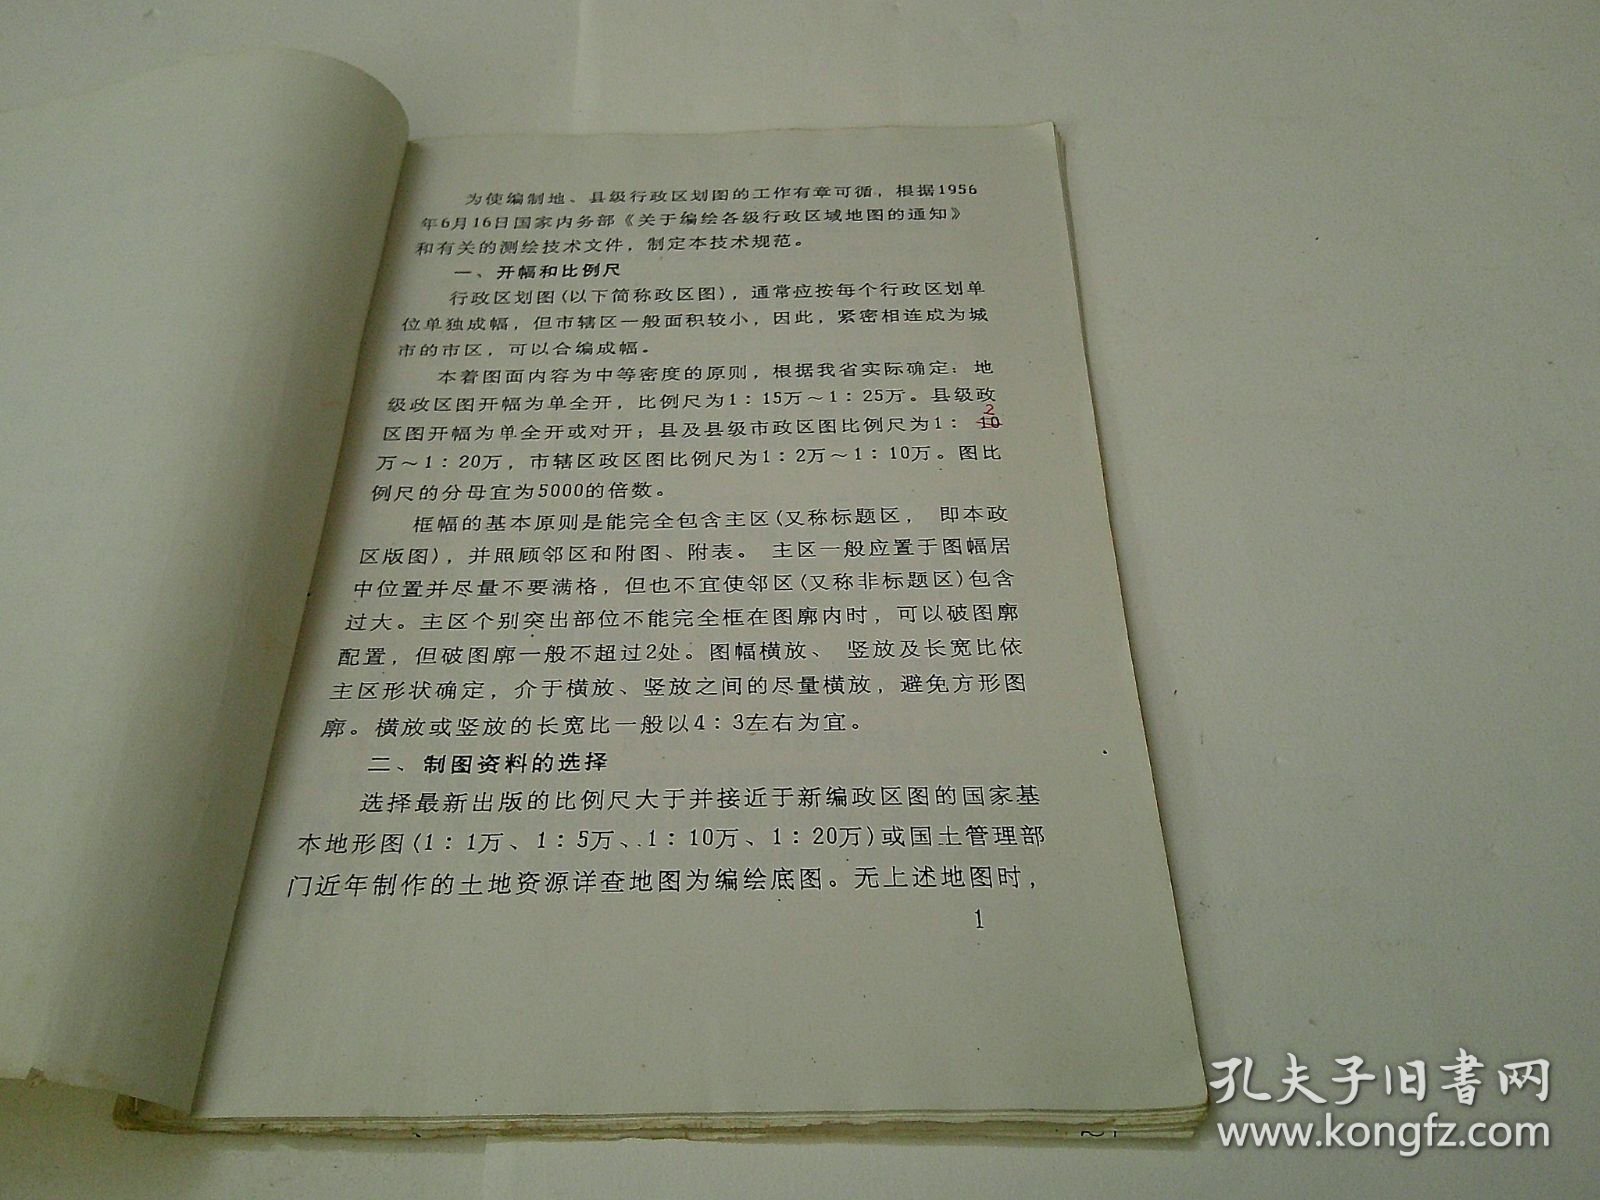 为使编制地、县级行政区划图的工作有章可循，根据1956
年6月16日国家内务部《关于编绘各级行政区域地图的通知》
和有关的测绘技术文件，制定本技术规范。
一、开幅和比例尺
行政区划图(以下简称政区图)，通常应按每个行政区划单
位单独成幅，但市辖区一般面积较小，因此，紧密相连成为城
市的市区，可以合编成幅。
本着图面内容为中等密度的原则，根据我省实际确定：地
级政区图开幅为单全开，比例尺为1：15万～1：25万。县级政
2
区图开幅为单全开或对开；县及县级市政区图比例尺为1：10
万～1：20万，市辖区政区图比例尺为1：2万～1：10万。图比
例尺的分母宜为5000的倍数。
框幅的基本原则是能完全包含主区(又称标题区， 即本政
区版图)，并照顾邻区和附图、附表。 主区一般应置于图幅居
中位置并尽量不要满格，但也不宜使邻区(又称非标题区)包含
过大。主区个别突出部位不能完全框在图廓内时，可以破图廓
配置，但破图廓一般不超过2处。图幅横放、 竖放及长宽比依
主区形状确定，介于横放、竖放之间的尽量横放，避免方形图
廓。横放或竖放的长宽比一般以4：3左右为宜。
二、制图资料的选择
选择最新出版的比例尺大于并接近于新编政区图的国家基
本地形图(1：1万、1：5万、1：10万、1：20万)或国土管理部
门近年制作的土地资源详查地图为编绘底图。无上述地图时，
1
孔夫子旧书网
www.kongfz.com